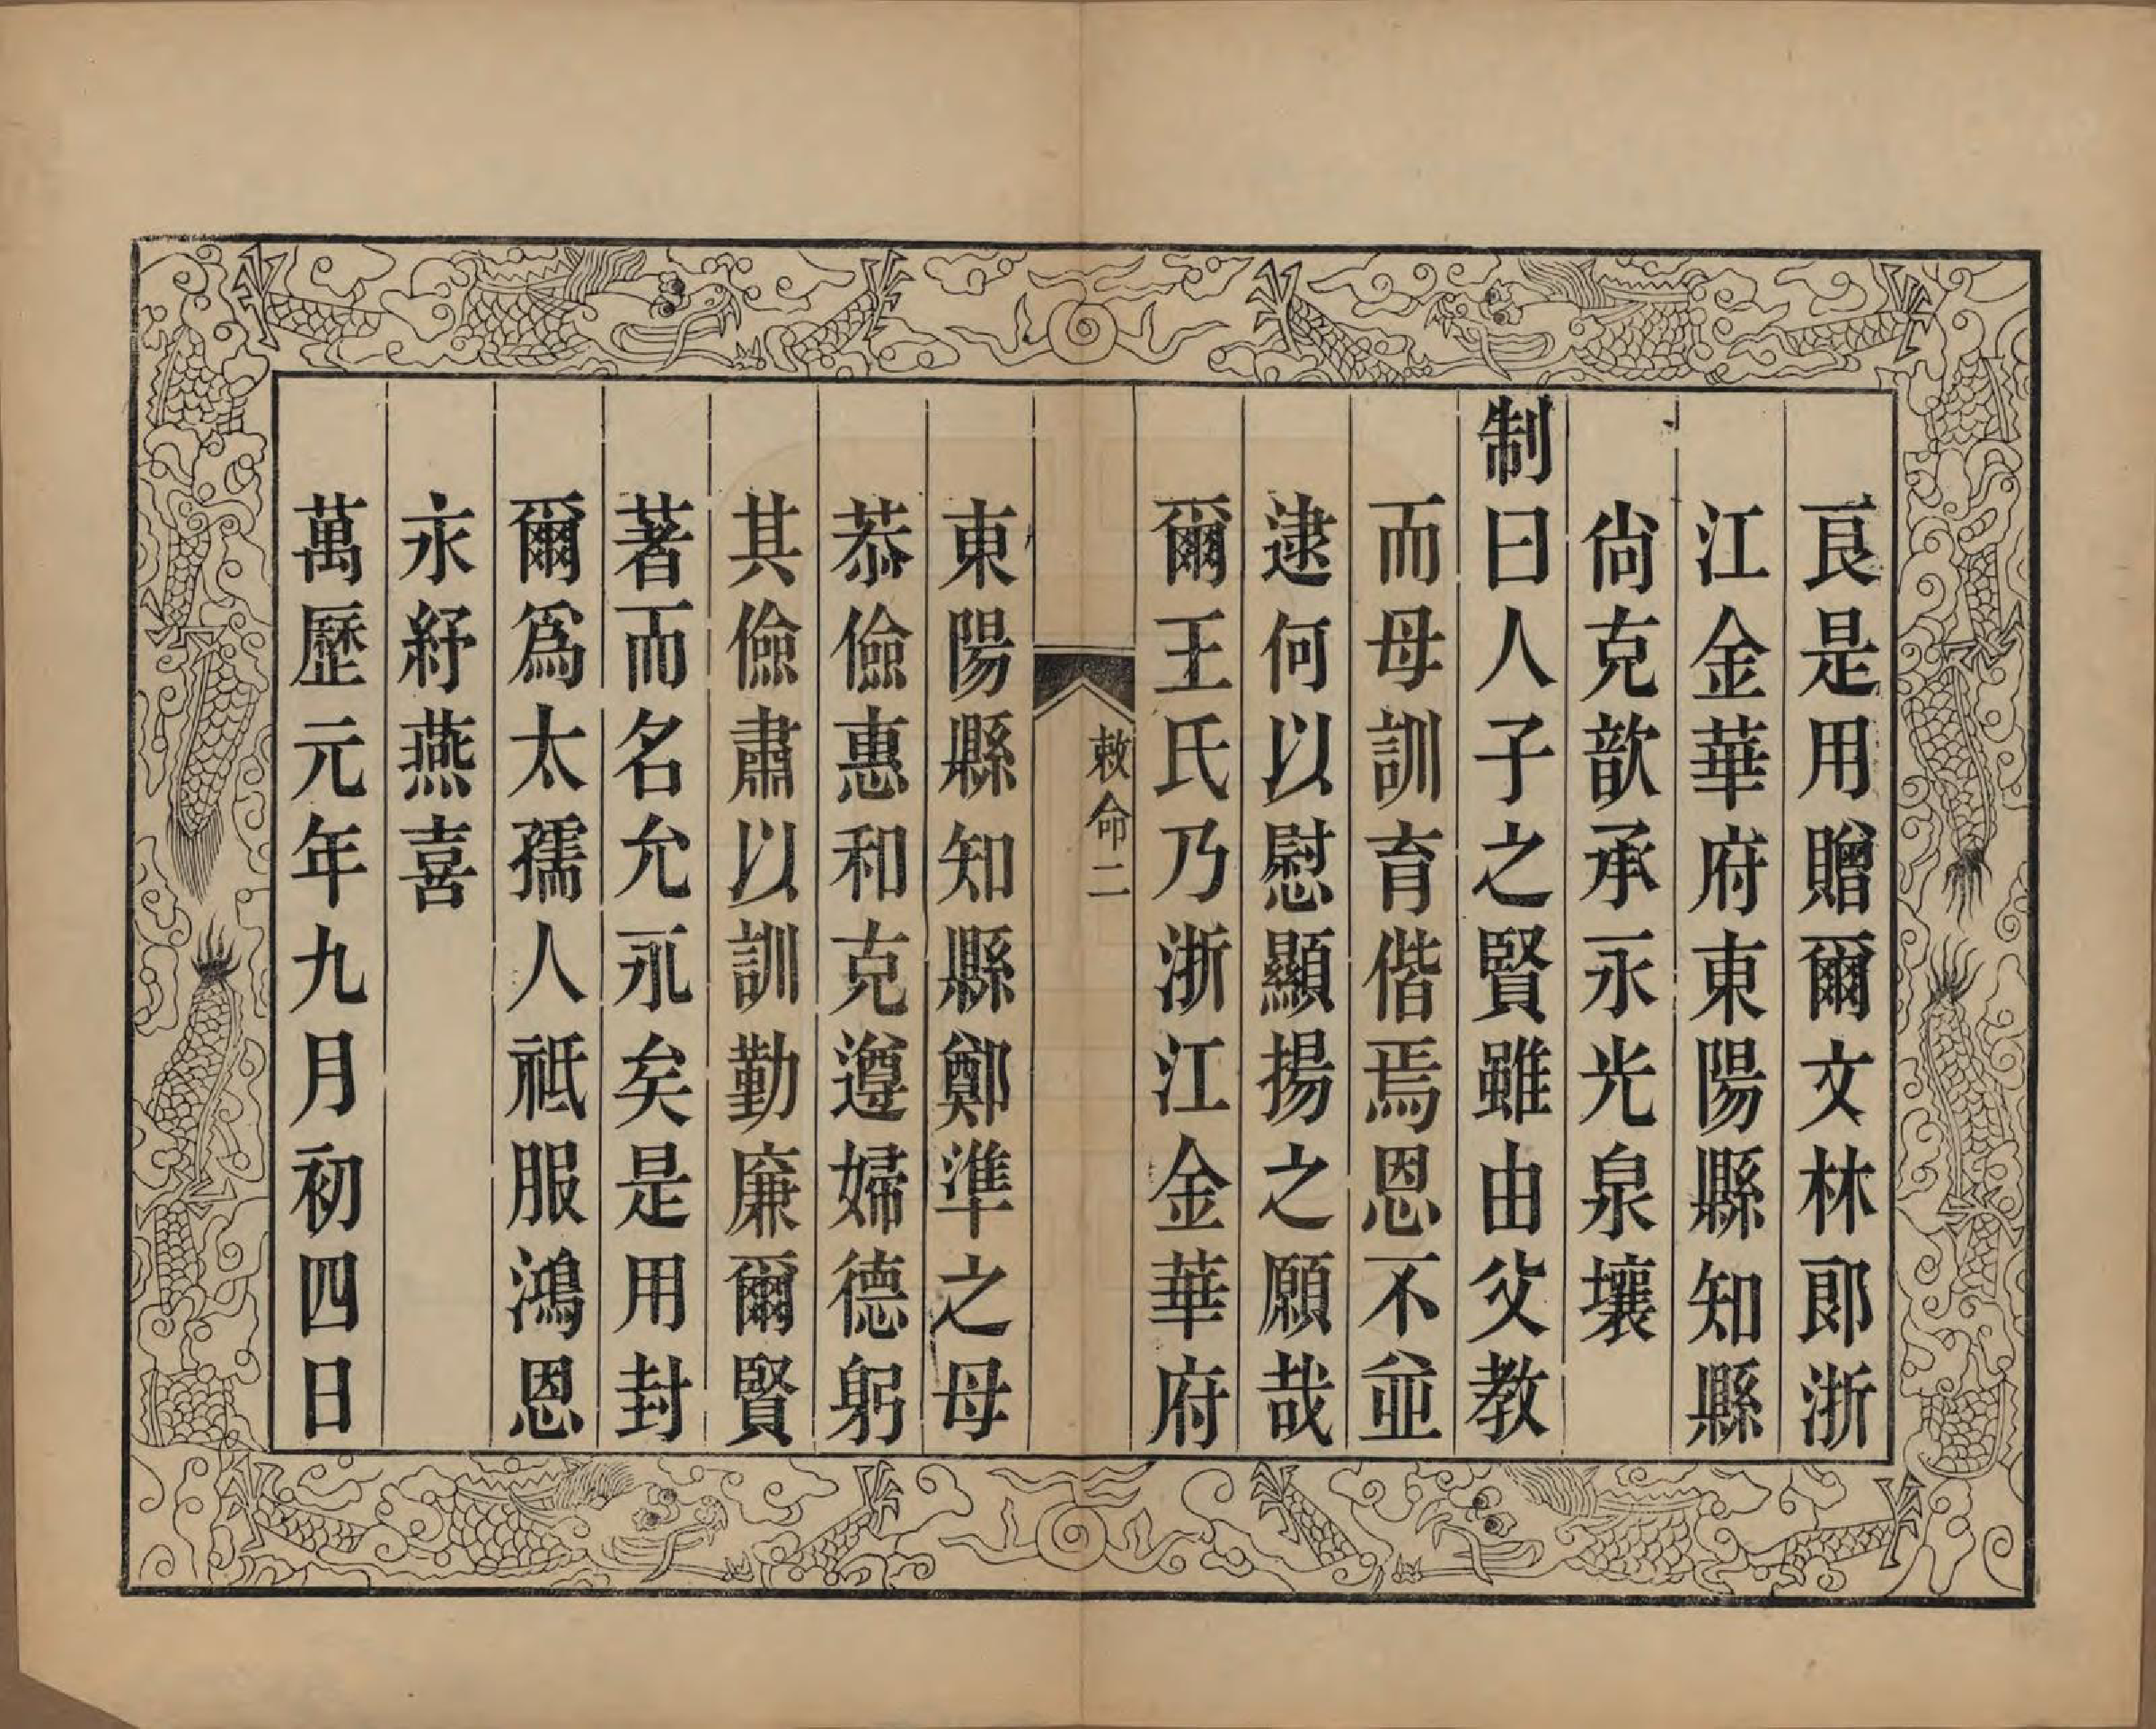 良是用贈爾文林郎浙
江金華府東陽縣知縣
尙克歆承永光泉壤
制曰人子之賢雖由父教
而母訓育偕焉恩不並
逮何以慰顯揚之願哉
爾王氏乃浙江金華府
敕命二
東陽縣知縣鄭準之母
恭儉惠和克遵婦德躬
其儉肅以訓勤廉爾賢
著而名允永矣是用封
爾爲太孺人祗服鴻恩
永紓燕喜
萬歷元年九月初四日